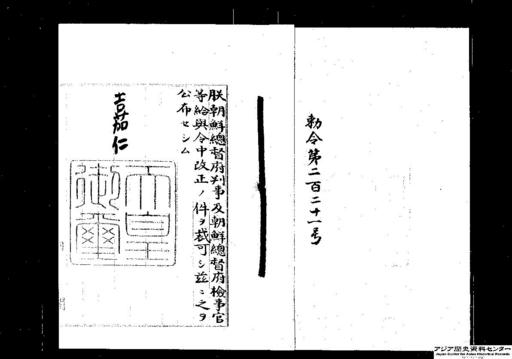 勅令第二百二十一号
朕朝鮮總督府判事及朝鮮總督府檢事官
等給與令中改正ノ件ヲ裁可シ茲ニ之ヲ
公布セシム
嘉仁
天皇
御璽
アジア歴史資料センター
Japan Center for Asian Historical Records